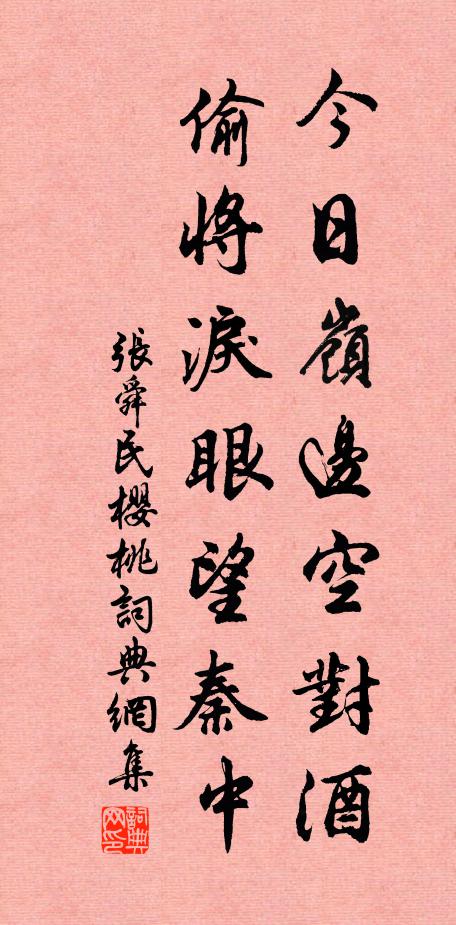 今日嶺邊空對酒
偷將淚眼望秦中
張舜民櫻桃詞典網集
詞典网印